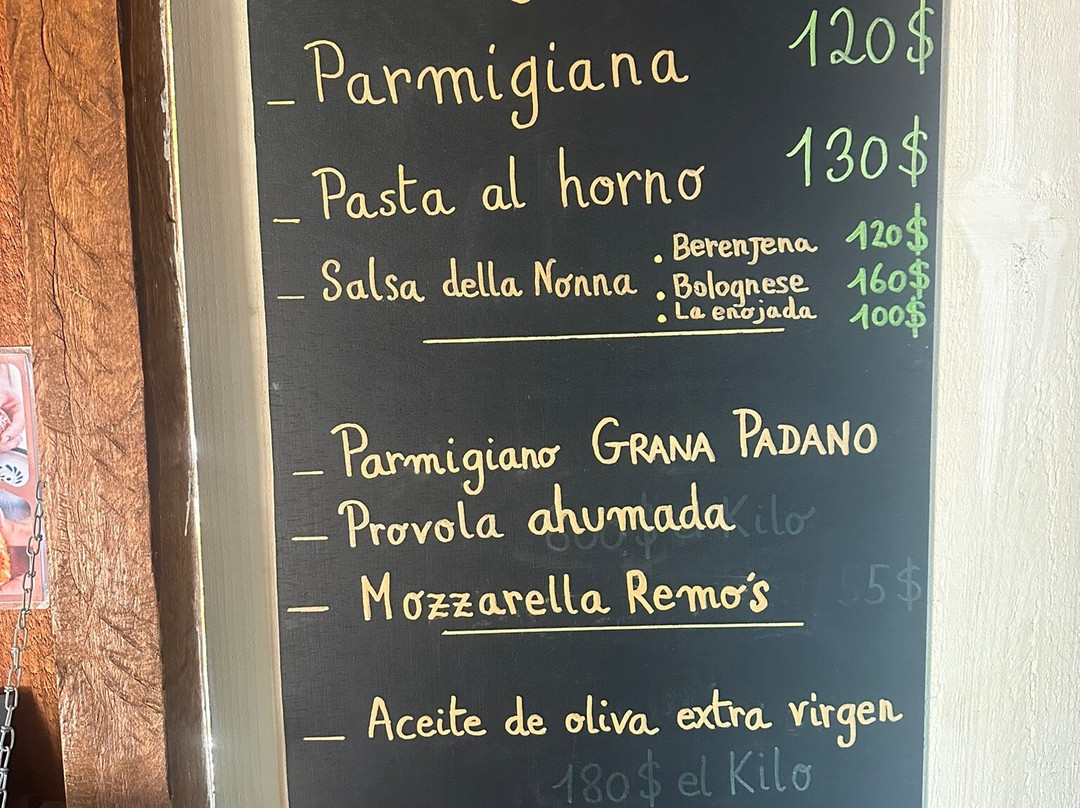 – Parmigiana 120$
– Pasta al horno 130$
– Salsa della Nonna
• Berenjena 120$
• Bolognese 160$
• La enojada 100$
– Parmigiano GRANA PADANO
– Provola ahumada
$ el Kilo
– Mozzarella Remo's 55$
– Aceite de oliva extra virgen
180$ el Kilo